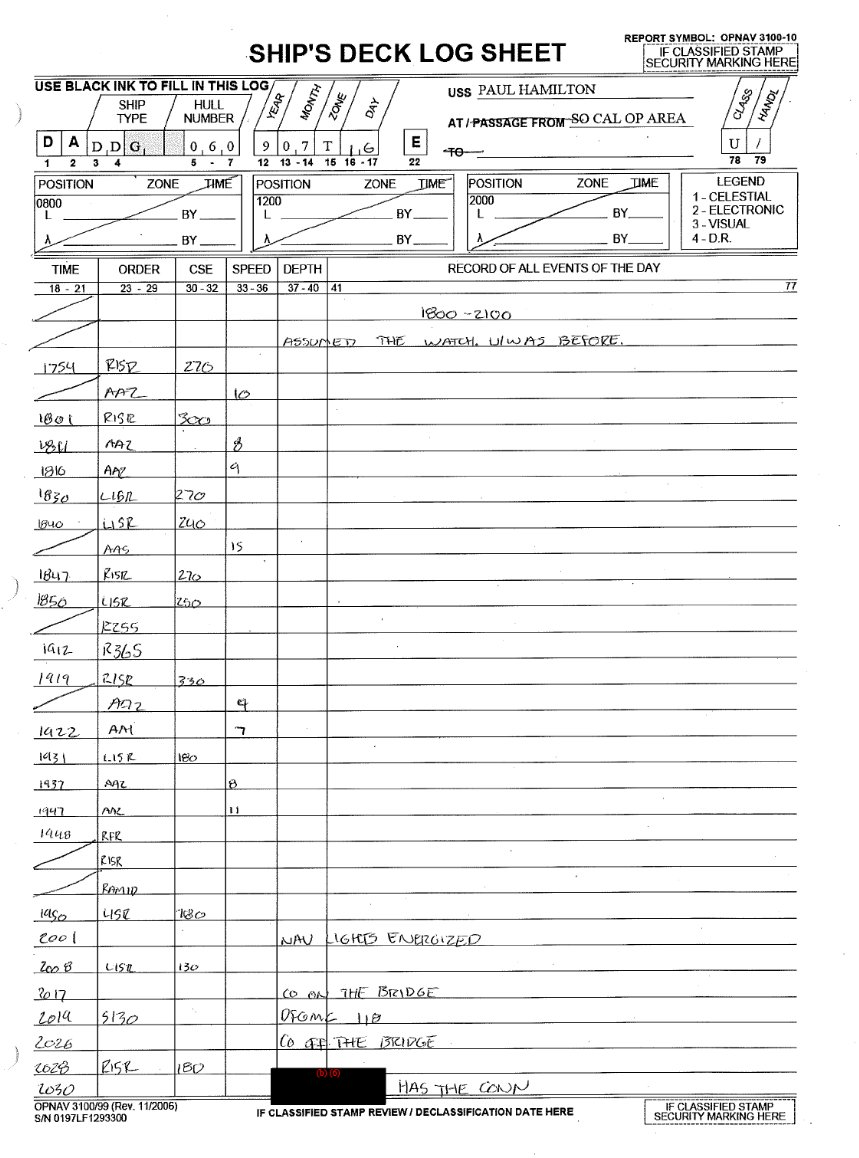 REPORT SYMBOL: OPNAV 3100-10
SHIP'S DECK LOG SHEET
IF CLASSIFIED STAMP
SECURITY MARKING HERE
USE BLACK INK TO FILL IN THIS LOG
SHIP TYPE HULL NUMBER YEAR MONTH ZONE DAY
USS PAUL HAMILTON
AT / PASSAGE FROM SO CAL OP AREA
TO
CLASS HANDL
D A D D G 0 6 0 9 0 7 T 1 6 E U /
1 2 3 4 5 - 7 12 13 - 14 15 16 - 17 22 78 79
POSITION ZONE TIME POSITION ZONE TIME POSITION ZONE TIME LEGEND
0800 1200 2000 1 - CELESTIAL
L BY L BY L BY 2 - ELECTRONIC
3 - VISUAL
λ BY λ BY λ BY 4 - D.R.
TIME ORDER CSE SPEED DEPTH RECORD OF ALL EVENTS OF THE DAY
18 - 21 23 - 29 30 - 32 33 - 36 37 - 40 41 77
1800 - 2100
ASSUMED THE WATCH. U/W AS BEFORE.
1754 R15R 270
AA2 10
1801 R15R 300
1811 AA2 8
1816 AA2 9
1830 L15R 270
1840 L15R 240
AAS 15
1847 R15R 270
1850 L15R 250
R255
1912 R365
1919 R15R 330
AA2 9
1922 AA1 7
1931 L15R 180
1937 AA2 8
1947 AA2 11
1948 RFR
R15R
RAMID
1950 L15R 180
2001 NAV LIGHTS ENERGIZED
2008 L15R 130
2017 CO ON THE BRIDGE
2019 S130 PFGMC 118
2026 CO OFF THE BRIDGE
2028 R15R 180
(b) (6)
2030 HAS THE CONN
OPNAV 3100/99 (Rev. 11/2006)
S/N 0197LF1293300
IF CLASSIFIED STAMP REVIEW / DECLASSIFICATION DATE HERE
IF CLASSIFIED STAMP
SECURITY MARKING HERE